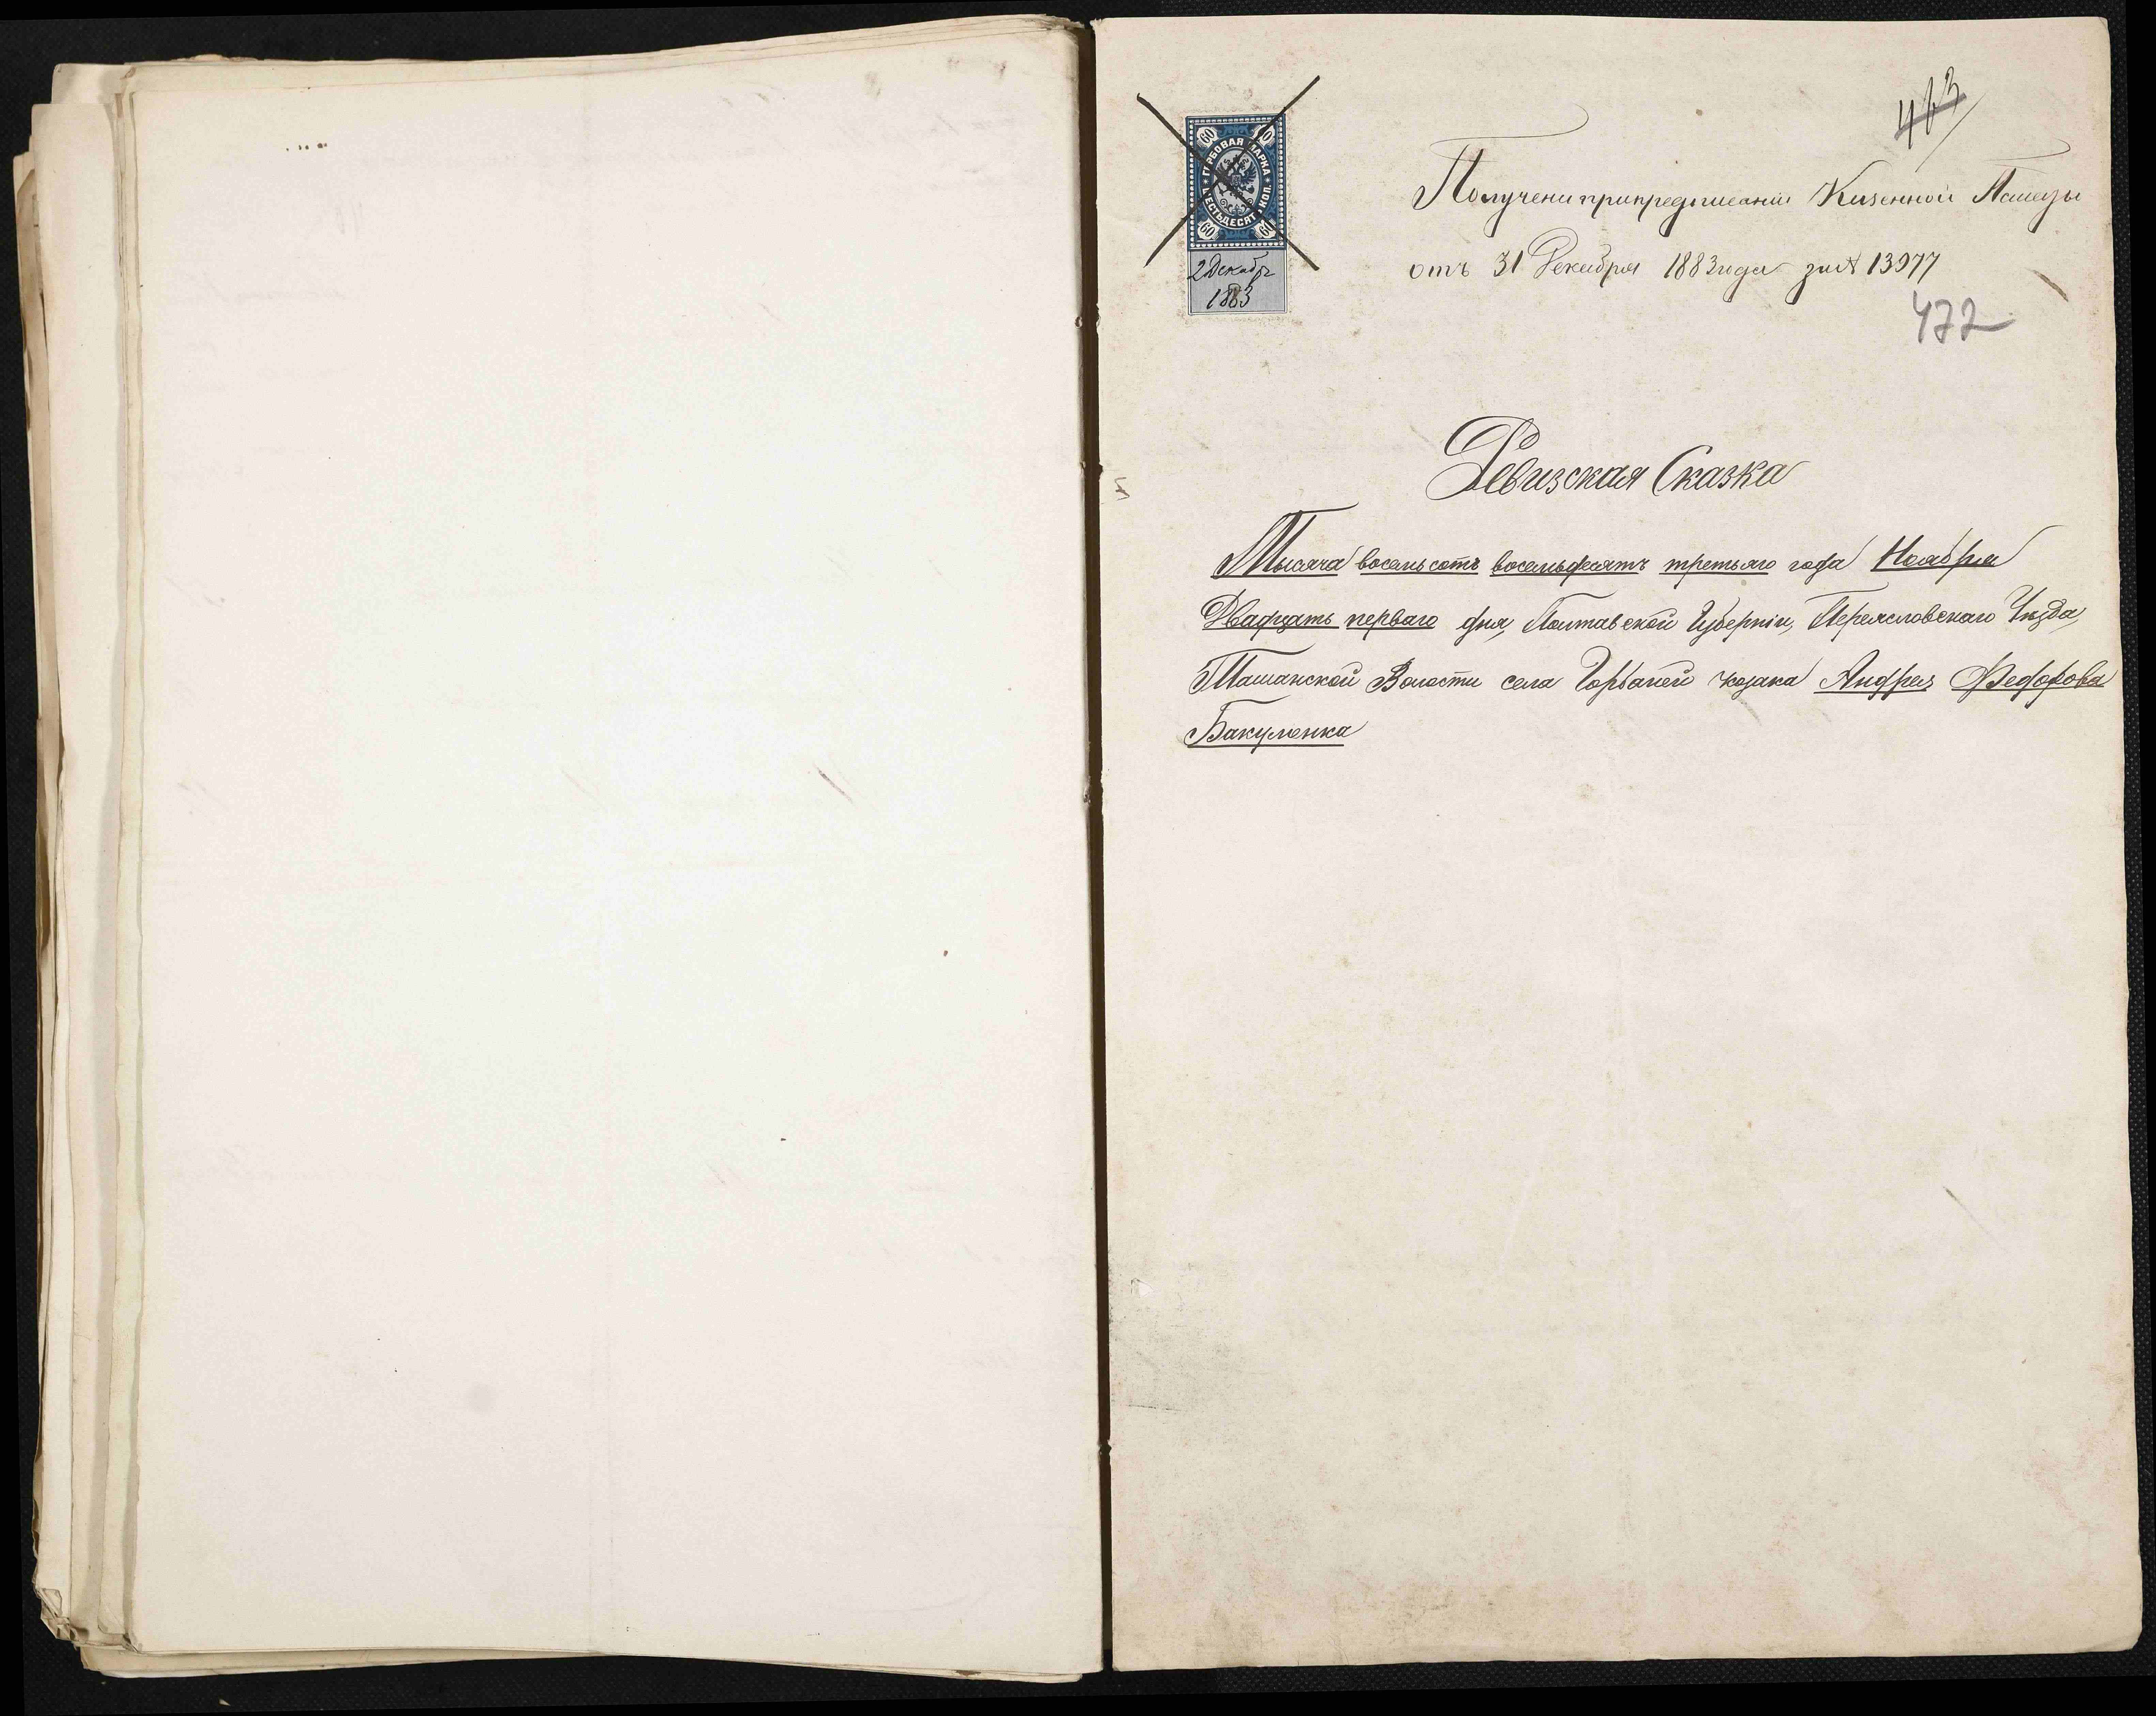 463
60 60
ГЕРБОВАЯ МАРКА
ШЕСТЬДЕСЯТ КОП.
60 60
2 Декабр
1883
Получени при предписании Казенной Палаты
отъ 31 Декабря 1883 года за № 13977
472
Ревизская Сказка
Тысяча восемьсотъ восемьдесятъ третьяго года Ноября
Двадцать перваго дня, Полтавской Губерніи, Переясловскаго Уѣзда,
Ташанской Волости села Горбаней козака Андрея Федорова
Бакуменка